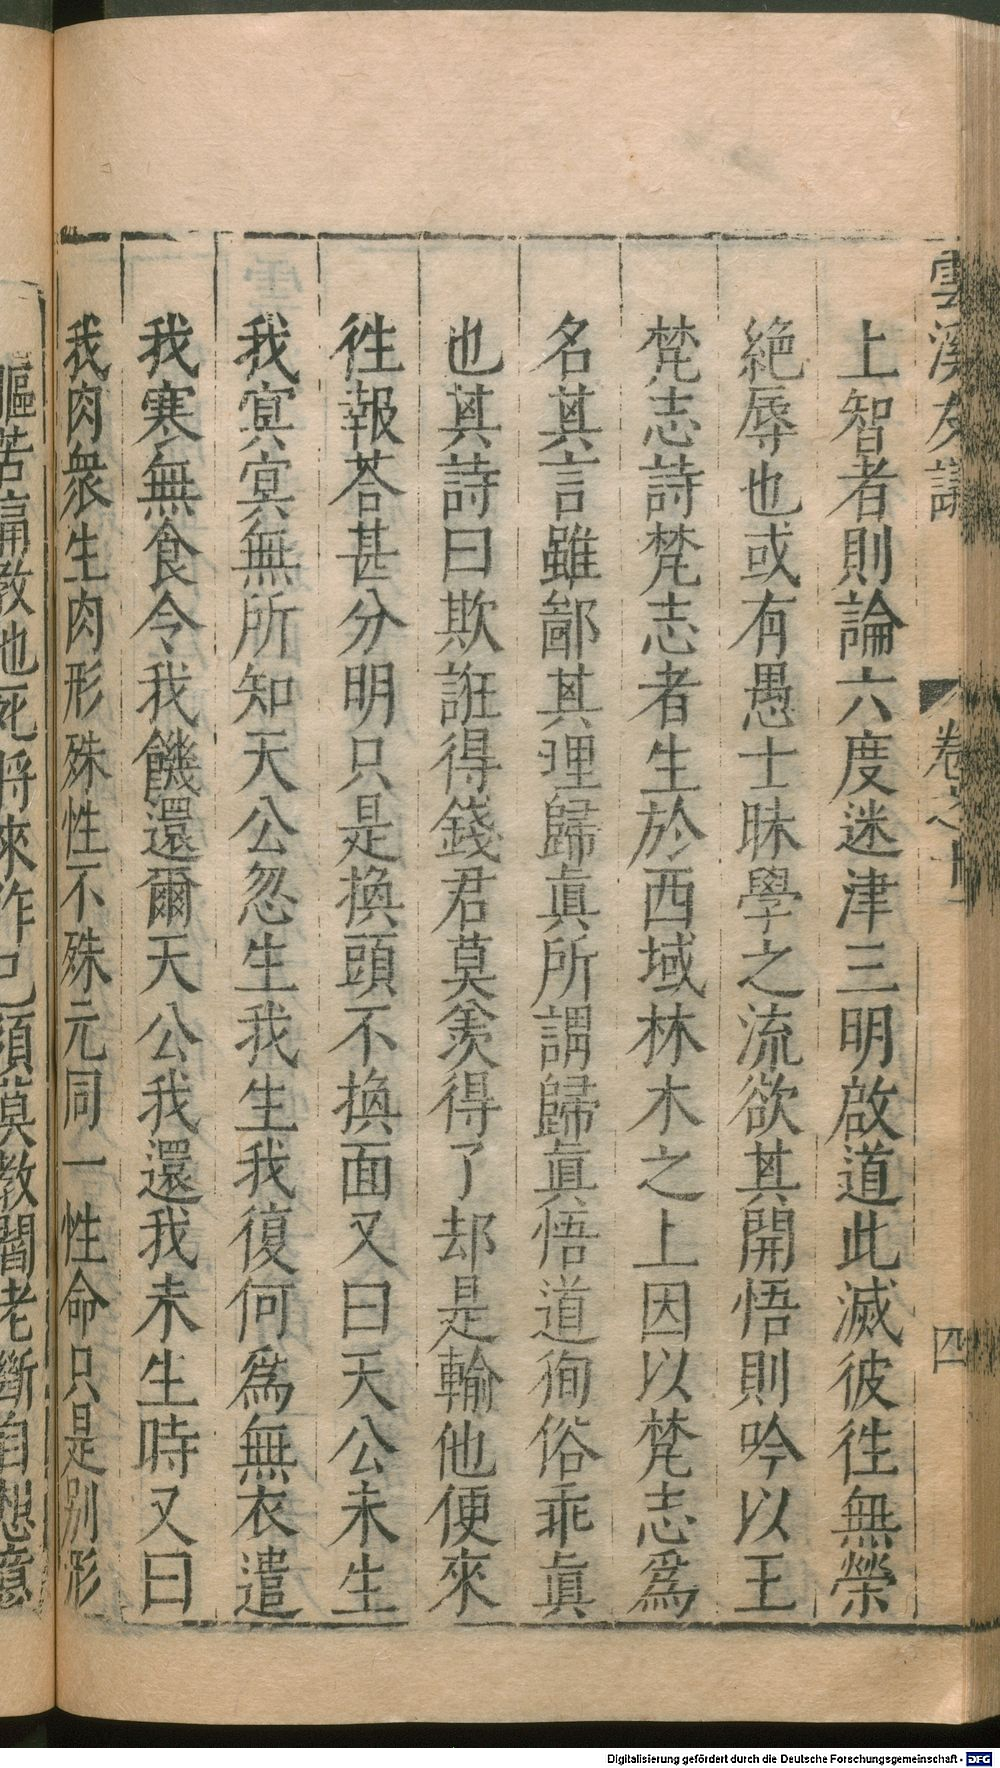 雲溪友議
卷之十一
四
上智者則論六度迷津三明啟道此滅彼徃無榮
絶辱也或有愚士昧學之流欲其開悟則吟以王
梵志詩梵志者生於西域林木之上因以梵志爲
名其言雖鄙其理歸眞所謂歸眞悟道徇俗乖眞
也其詩曰欺誑得錢君莫羨得了却是輸他便來
徃報荅甚分明只是換頭不換面又曰天公未生
我冥冥無所知天公忽生我生我復何爲無衣遣
我寒無食令我饑還爾天公我還我未生時又曰
我肉衆生肉形殊性不殊元同一性命只是别形
軀苦痛教他死將來作已須莫教閻老斷自想意
Digitalisierung gefördert durch die Deutsche Forschungsgemeinschaft - DFG